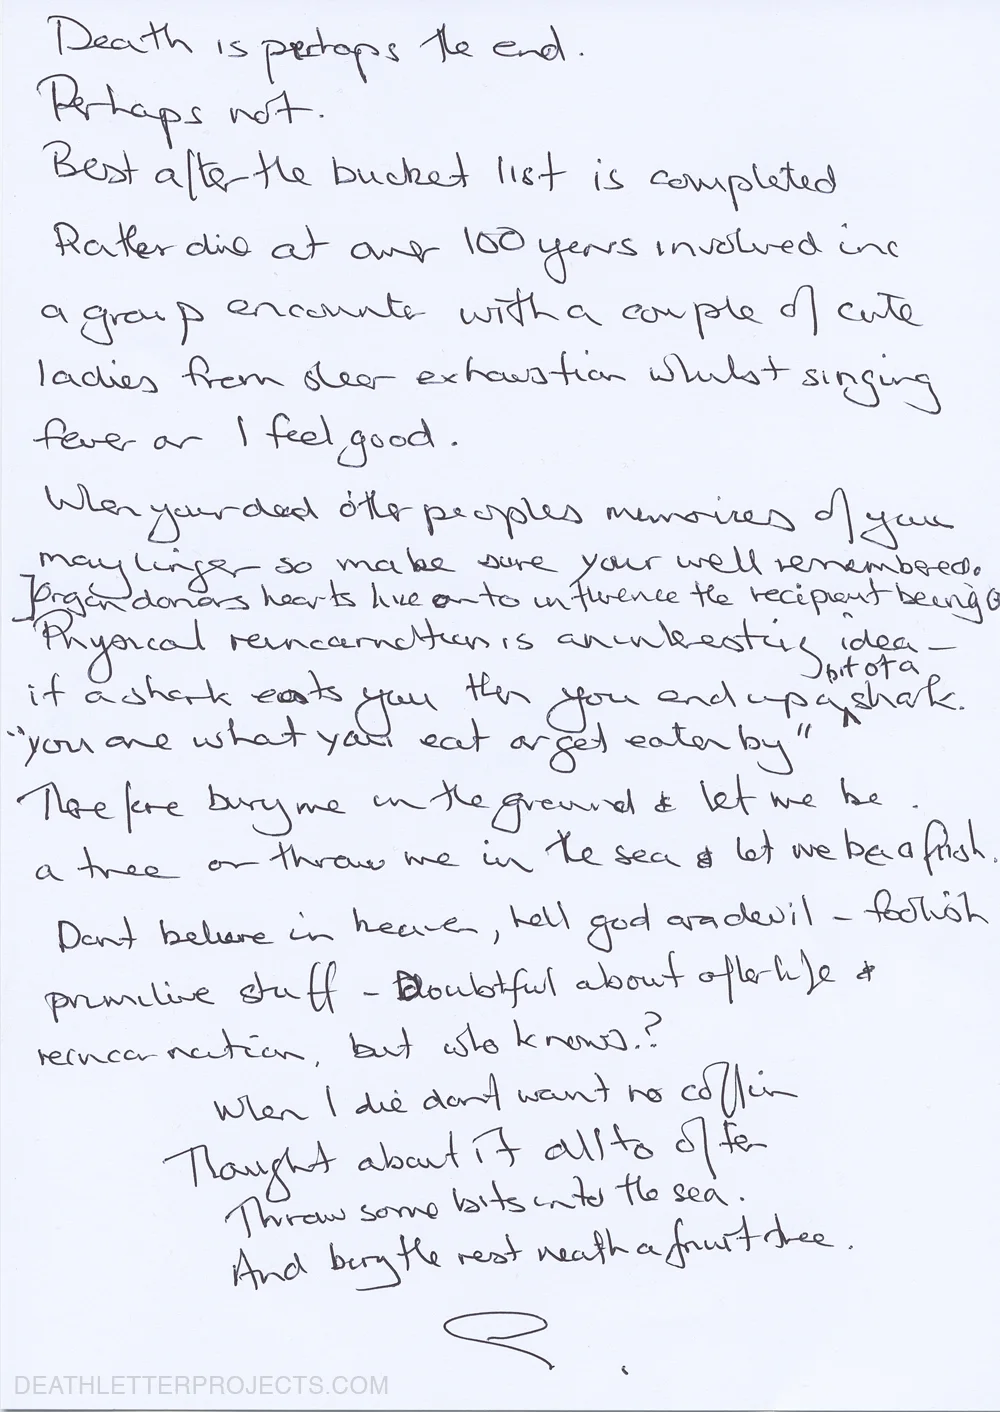 Death is perhaps the end.
Perhaps not.
Best after the bucket list is completed
Rather die at over 100 years involved in
a group encounter with a couple of cute
ladies from sheer exhaustion whilst singing
fever or I feel good.
When your dead other peoples memories of you
may linger so make sure your well remembered.
Organ donors hearts live on to influence the recipient being
Physical reincarnation is an interesting idea –
bit of a
if a shark eats you then you end up a shark.
"you are what you eat or get eaten by"
Therefore bury me in the ground & let me be
a tree or throw me in the sea & let me be a fish.
Dont believe in heaven, hell god or a devil – foolish
primitive stuff – Doubtful about after-life &
reincarnation, but who knows.?
When I die dont want no coffin
Thought about it all to often
Throw some bits into the sea.
And bury the rest neath a fruit tree.
DEATHLETTERPROJECTS.COM